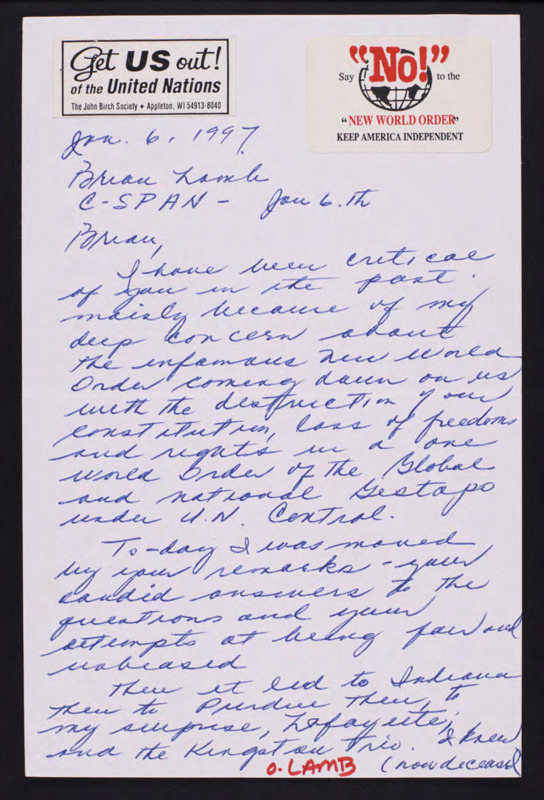 Get US out!
of the United Nations
The John Birch Society • Appleton, WI 54913-8040
Say "No!" to the
"NEW WORLD ORDER"
KEEP AMERICA INDEPENDENT
Jan. 6, 1997
Brian Lamb
C-SPAN - Jan 6.th
Brian,
I have been critical
of you in the past.
mainly because of my
deep concern about
the infamous New World
Order coming down on us
with the destruction of our
constitution, loss of freedoms
and rights in a one
world Order of the Global
and national Gestapo
under U.N. Control.
To-day I was moved
by your remarks - your
candid answers to the
questions and your
attempts at being fair and
unbiased
Then it led to Indiana
then to Purdue then, to
my surprise, Lafayette,
and the Kingston Trio. I knew
O. LAMB (now deceased